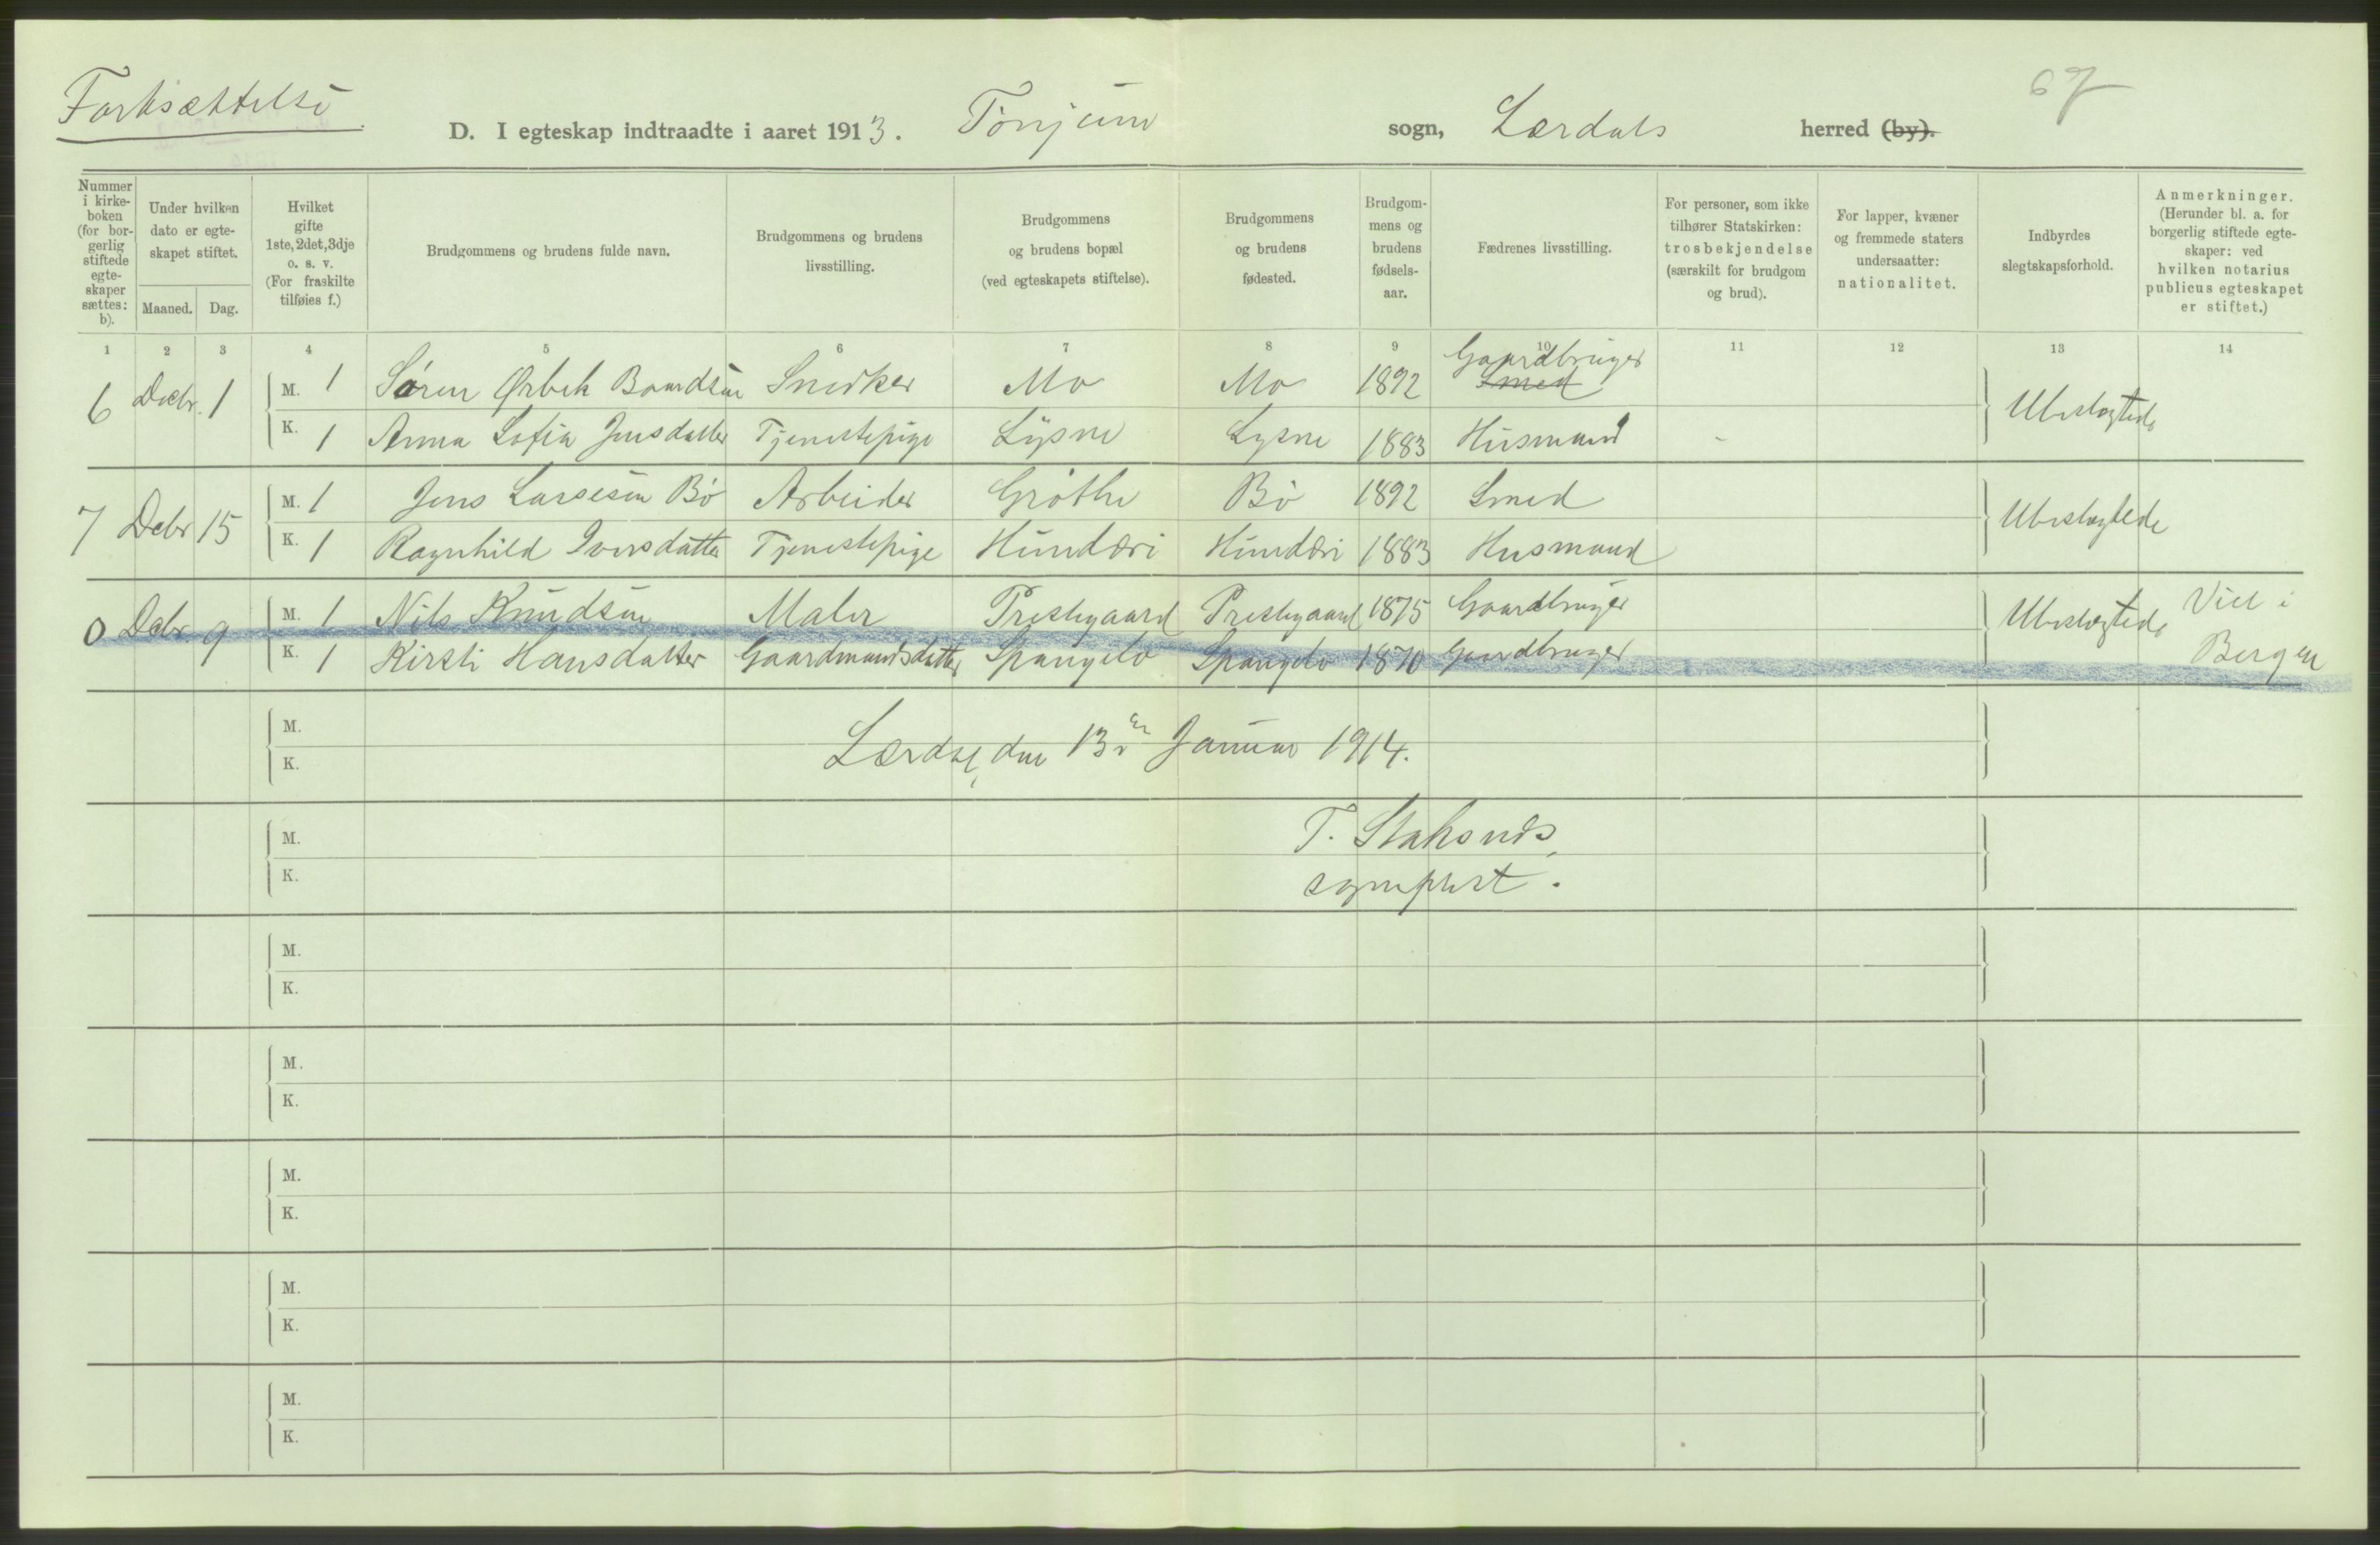 67
Fortsættelse
D. I egteskap indtraadte i aaret 1913. Tönjum sogn, Lærdals herred (by).
Nummer i kirkeboken (for borgerlig stiftede egteskaper sættes: b).
Under hvilken dato er egteskapet stiftet.
Maaned. Dag.
Hvilket gifte 1ste, 2det, 3dje o. s. v. (For fraskilte tilføies f.)
Brudgommens og brudens fulde navn.
Brudgommens og brudens livsstilling.
Brudgommens og brudens bopæl (ved egteskapets stiftelse).
Brudgommens og brudens fødested.
Brudgommens og brudens fødselsaar.
Fædrenes livsstilling.
For personer, som ikke tilhører Statskirken: trosbekjendelse (særskilt for brudgom og brud).
For lapper, kvæner og fremmede staters undersaatter: nationalitet.
Indbyrdes slegtskapsforhold.
Anmerkninger. (Herunder bl. a. for borgerlig stiftede egteskaper: ved hvilken notarius publicus egteskapet er stiftet.)
1 2 3 4 5 6 7 8 9 10 11 12 13 14
6 Decbr. 1 M. 1 Søren Ørbek Baardsen Snedker Mo Mo 1892 Gaardbruger Smed Ubeslægtede
K. 1 Anna Sofia Jensdatter Tjenestepige Lysne Lysne 1883 Husmand -
7 Decbr 15 M. 1 Jens Larsesen Bö Arbeider Gröthe Bö 1892 Smed Ubeslægtede
K. 1 Ragnhild Iversdatter Tjenestepige Hunderi Hunderi 1883 Husmand
0 Decbr 9 M. 1 Nils Knudsen Maler Prestegaard Prestegaard 1875 Gaardbruger Ubeslægtede Viet i Bergen
K. 1 Kirsti Hansdatter Gaardmandsdatter Spangelo Spangelo 1870 Gaardbruger
M.
K.
Lærdal, den 13de Januar 1914.
M. T.
K. sogneprest.
M.
K.
M.
K.
M.
K.
M.
K.
M.
K.